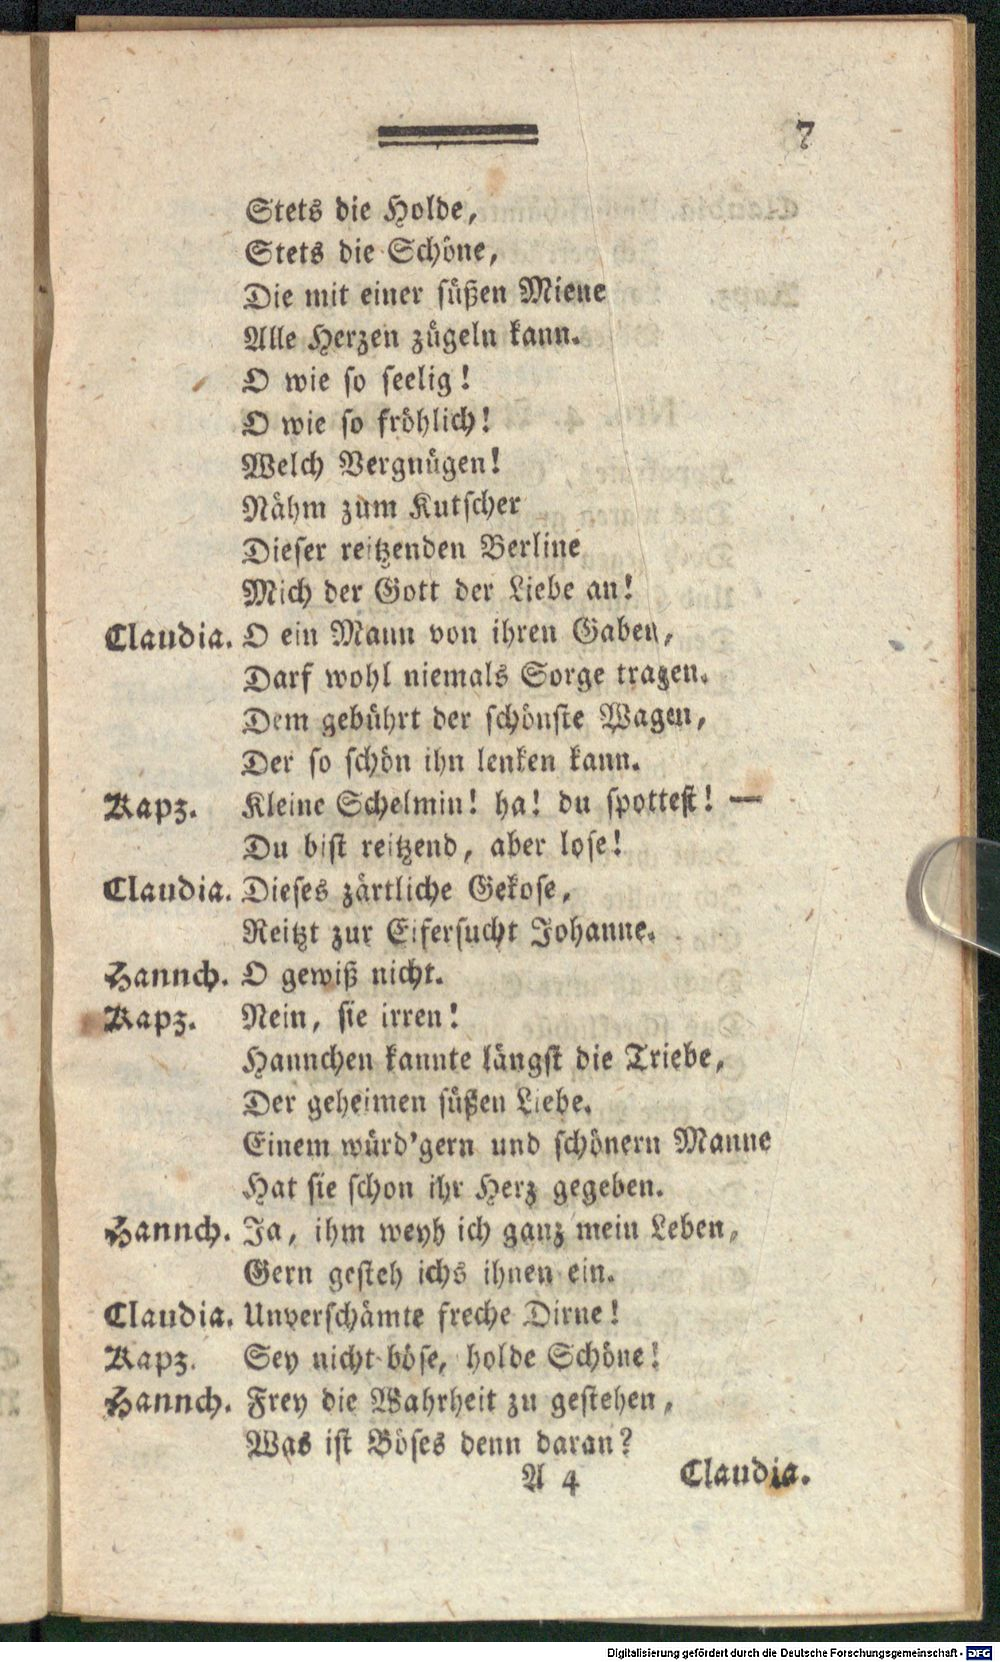 7
Stets die Holde,
Stets die Schöne,
Die mit einer süßen Miene
Alle Herzen zügeln kann.
O wie so seelig!
O wie so fröhlich!
Welch Vergnügen!
Nähm zum Kutscher
Dieser reitzenden Berline
Mich der Gott der Liebe an!
Claudia. O ein Mann von ihren Gaben,
Darf wohl niemals Sorge tragen.
Dem gebührt der schönste Wagen,
Der so schön ihn lenken kann.
Kapz. Kleine Schelmin! ha! du spottest! —
Du bist reitzend, aber lose!
Claudia. Dieses zärtliche Gekose,
Reitzt zur Eifersucht Johanne.
Hannch. O gewiß nicht.
Kapz. Nein, sie irren!
Hannchen kannte längst die Triebe,
Der geheimen süßen Liebe.
Einem würd'gern und schönern Manne
Hat sie schon ihr Herz gegeben.
Hannch. Ja, ihm weyh ich ganz mein Leben,
Gern gesteh ichs ihnen ein.
Claudia. Unverschämte freche Dirne!
Kapz. Sey nicht böse, holde Schöne!
Hannch. Frey die Wahrheit zu gestehen,
Was ist Böses denn daran?
A 4 Claudia.
Digitalisierung gefördert durch die Deutsche Forschungsgemeinschaft - DFG